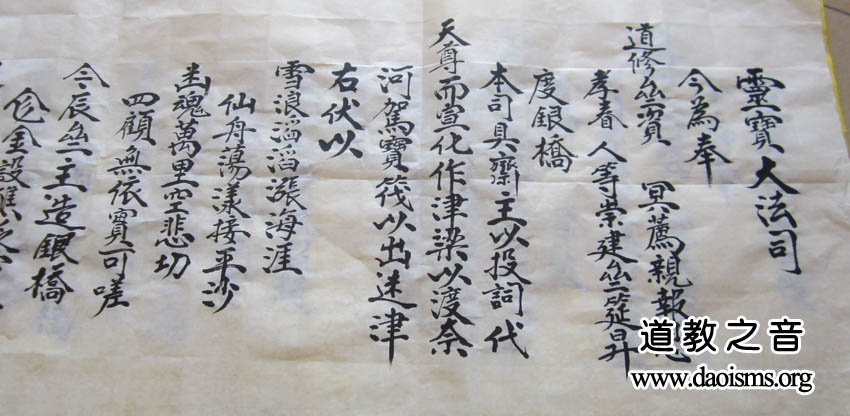 靈寶大法司
今為奉
道修亝資 冥薦親報
孝春人等崇建亝筵昇
度銀橋
本司具齋主以投詞代
天尊而宣化作津梁以渡奈
河駕寶筏以出迷津
右伏以
雪浪滔滔漲海涯
仙舟蕩漾接平沙
幽魂萬里空悲切
四顧無依實可嗟
今辰亝主造銀橋
金設
道教之音
www.daoisms.org